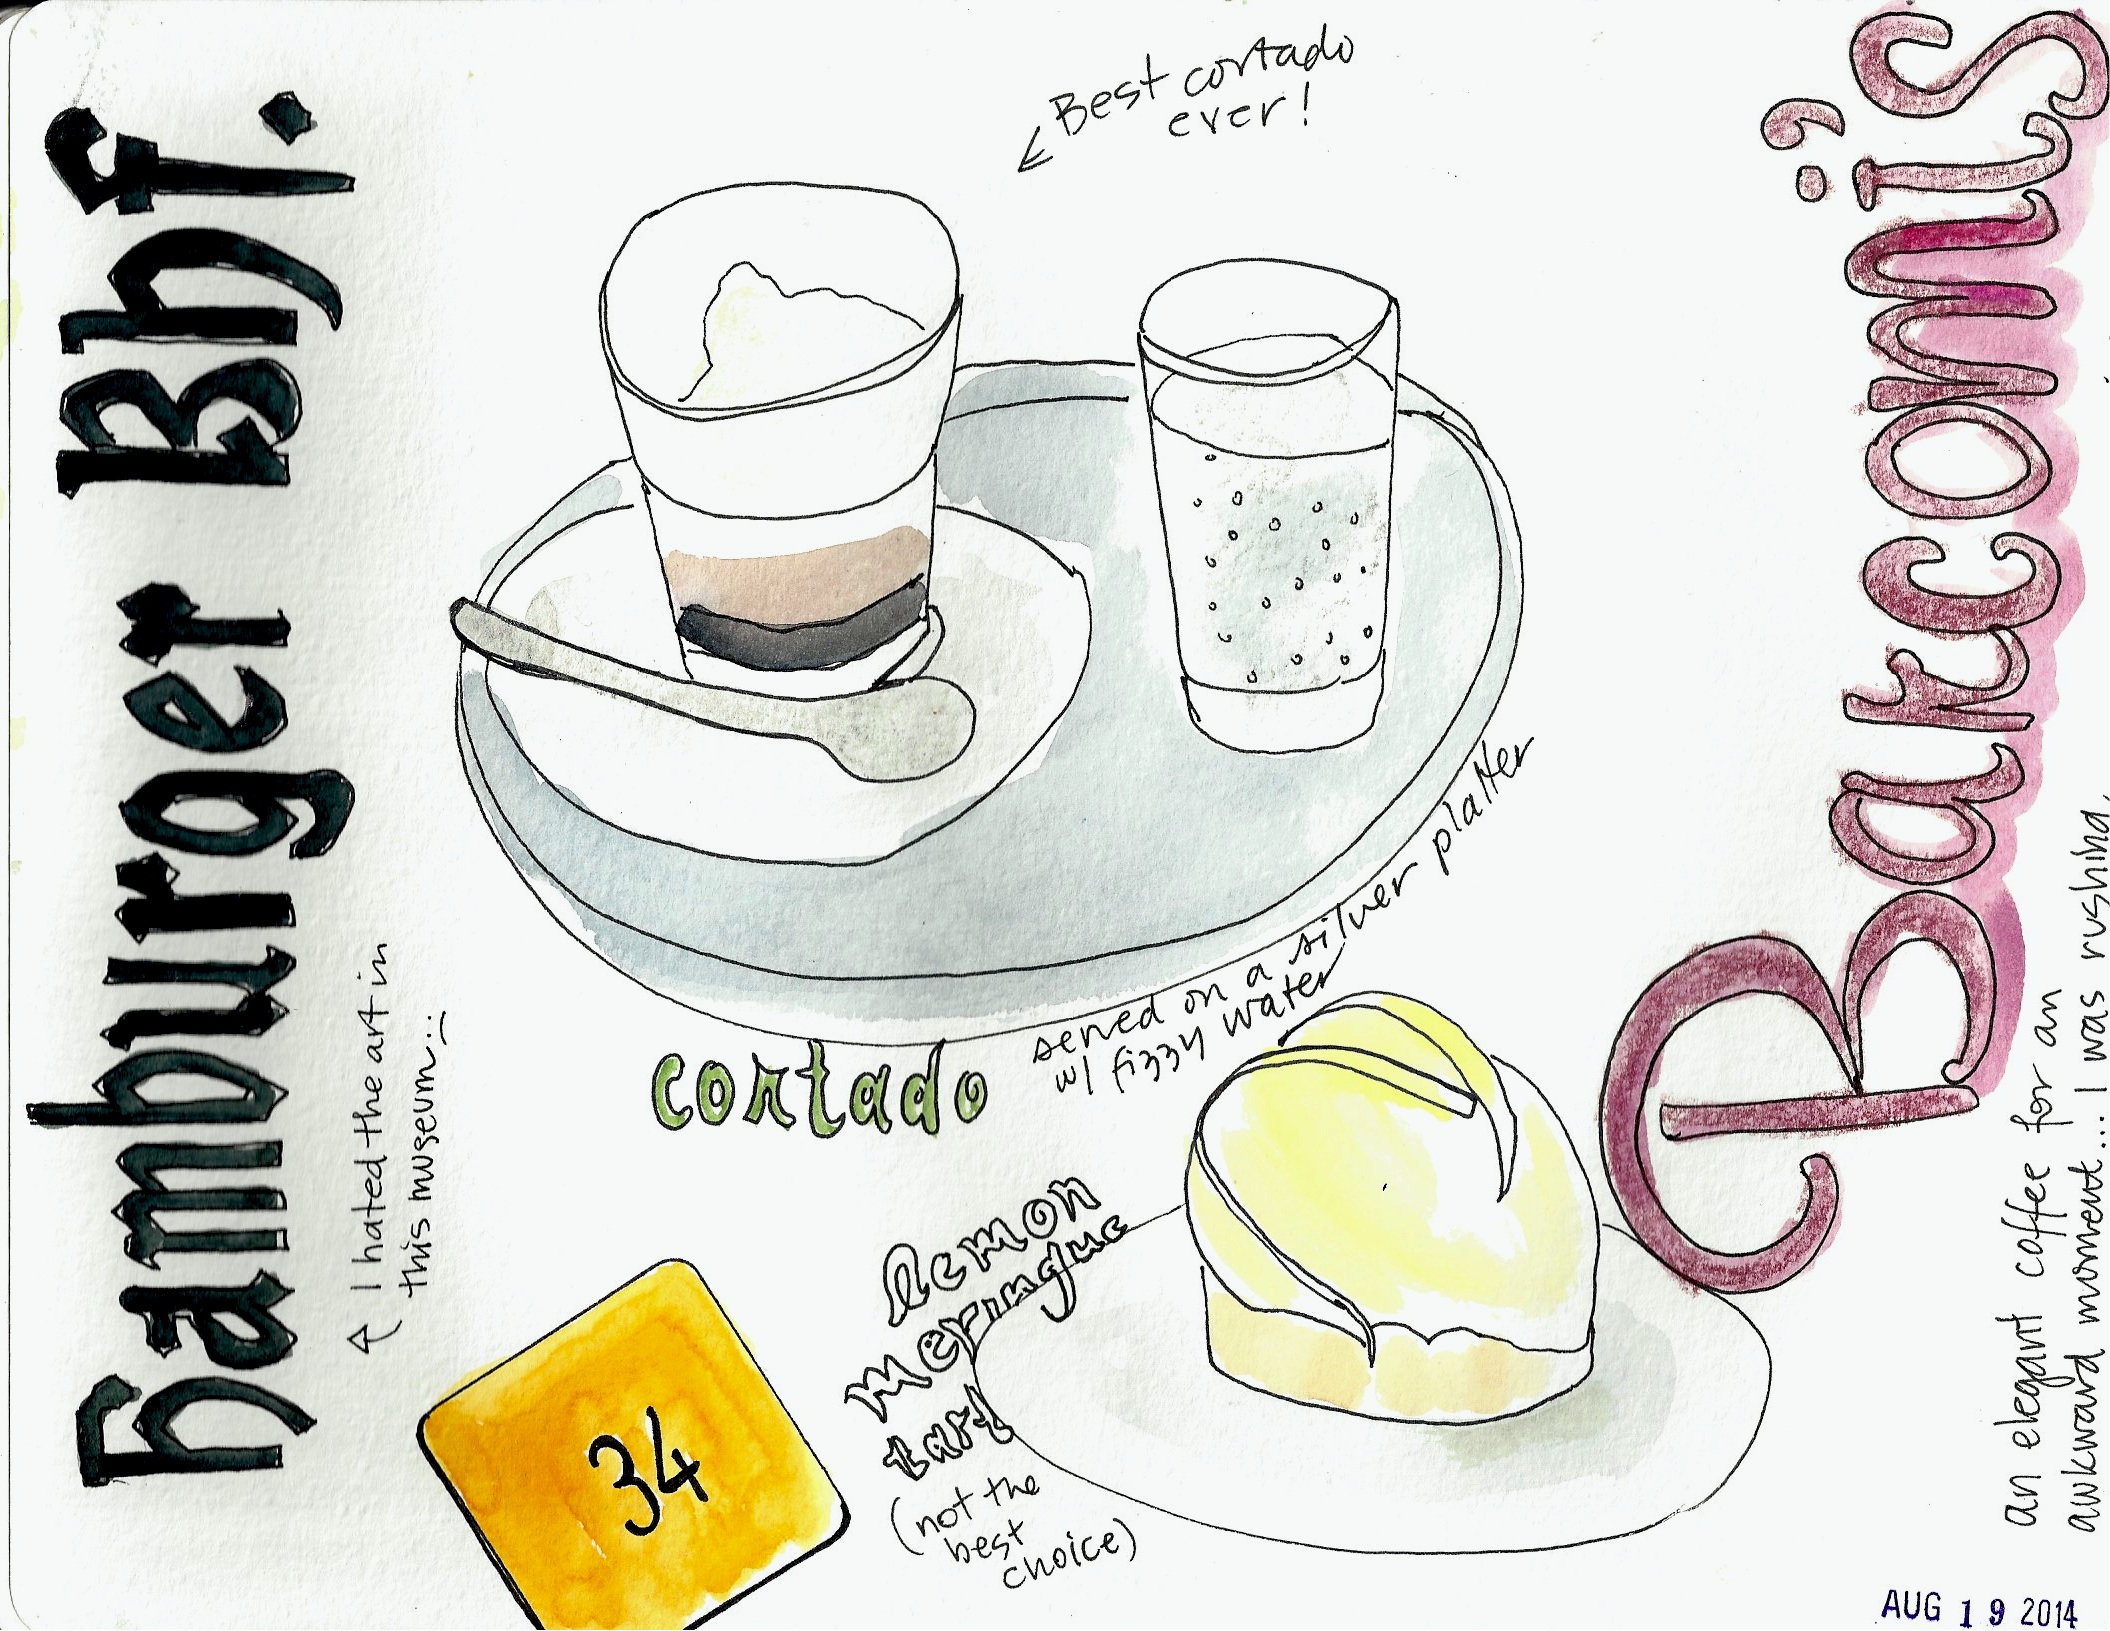 Hamburger Bhf.
I hated the art in
this museum :(
Best cortado
ever!
cortado
served on a silver platter
w/ fizzy water
lemon
meringue
tart
(not the
best
choice)
34
Barcomi's
an elegant coffee for an
awkward moment... I was rushing.
AUG 19 2014